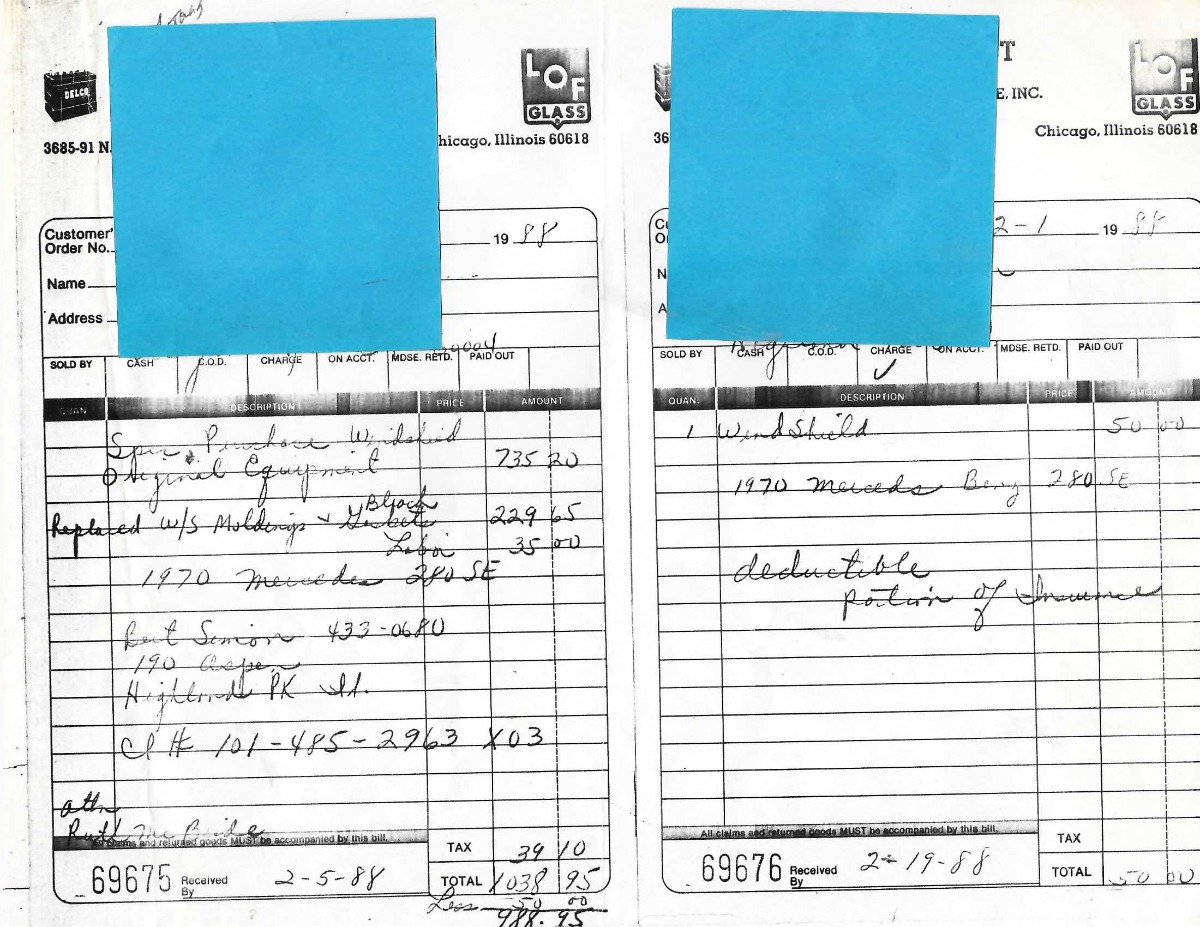 DELCO
LOF
GLASS
3685-91 N.
hicago, Illinois 60618
Customer'
Order No.
19 88
Name
Address
SOLD BY CASH C.O.D. CHARGE ON ACCT. MDSE. RETD. PAID OUT
QUAN. DESCRIPTION PRICE AMOUNT
Purchase Windshield
Original Equipment 735 20
Block
Replaced W/S Moldings + Gaskets 229 65
Labor 35 00
1970 Mercedes 280 SE
Simon 433-0680
190 Aspen
Highland PK Ill.
Cl # 101-485-2963 X03
attn
Ruth Mc Bride
All claims and returned goods MUST be accompanied by this bill.
TAX 39 10
69675 Received By 2-5-88
TOTAL 1038 95
Less 50 00
988.95
T
E, INC.
LOF
GLASS
36
Chicago, Illinois 60618
Cu
Or
2-1 19 88
N
A
SOLD BY CASH C.O.D. CHARGE ON ACCT. MDSE. RETD. PAID OUT
✓
QUAN DESCRIPTION PRICE AMOUNT
1 WindShield 50 00
1970 Mercedes Benz 280 SE
deductible
portion of Insurance
All claims and returned goods MUST be accompanied by this bill.
TAX
69676 Received By 2-19-88
TOTAL 50 00